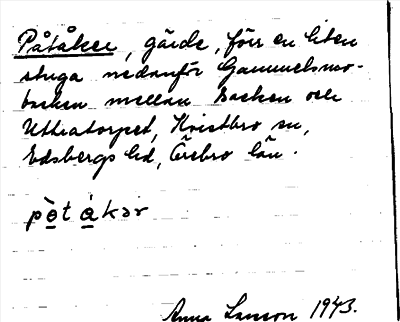 Påtåker, gärde, förr en liten
stuga nedanför Gammelsmo-
backen mellan backen och
Uttratorpet, Kvistbro sn,
Edsbergs hd, Örebro län.
pò̱t á̱kər
Anna Larsson 1943.